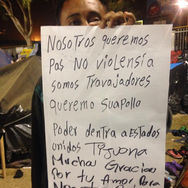 Nosotros queremos
pas No violensia
somos Travajadores
queremo su apollo
Poder dentra a Estados
unidos Tijuana
Muchas Gracias
Por tu Amor Para